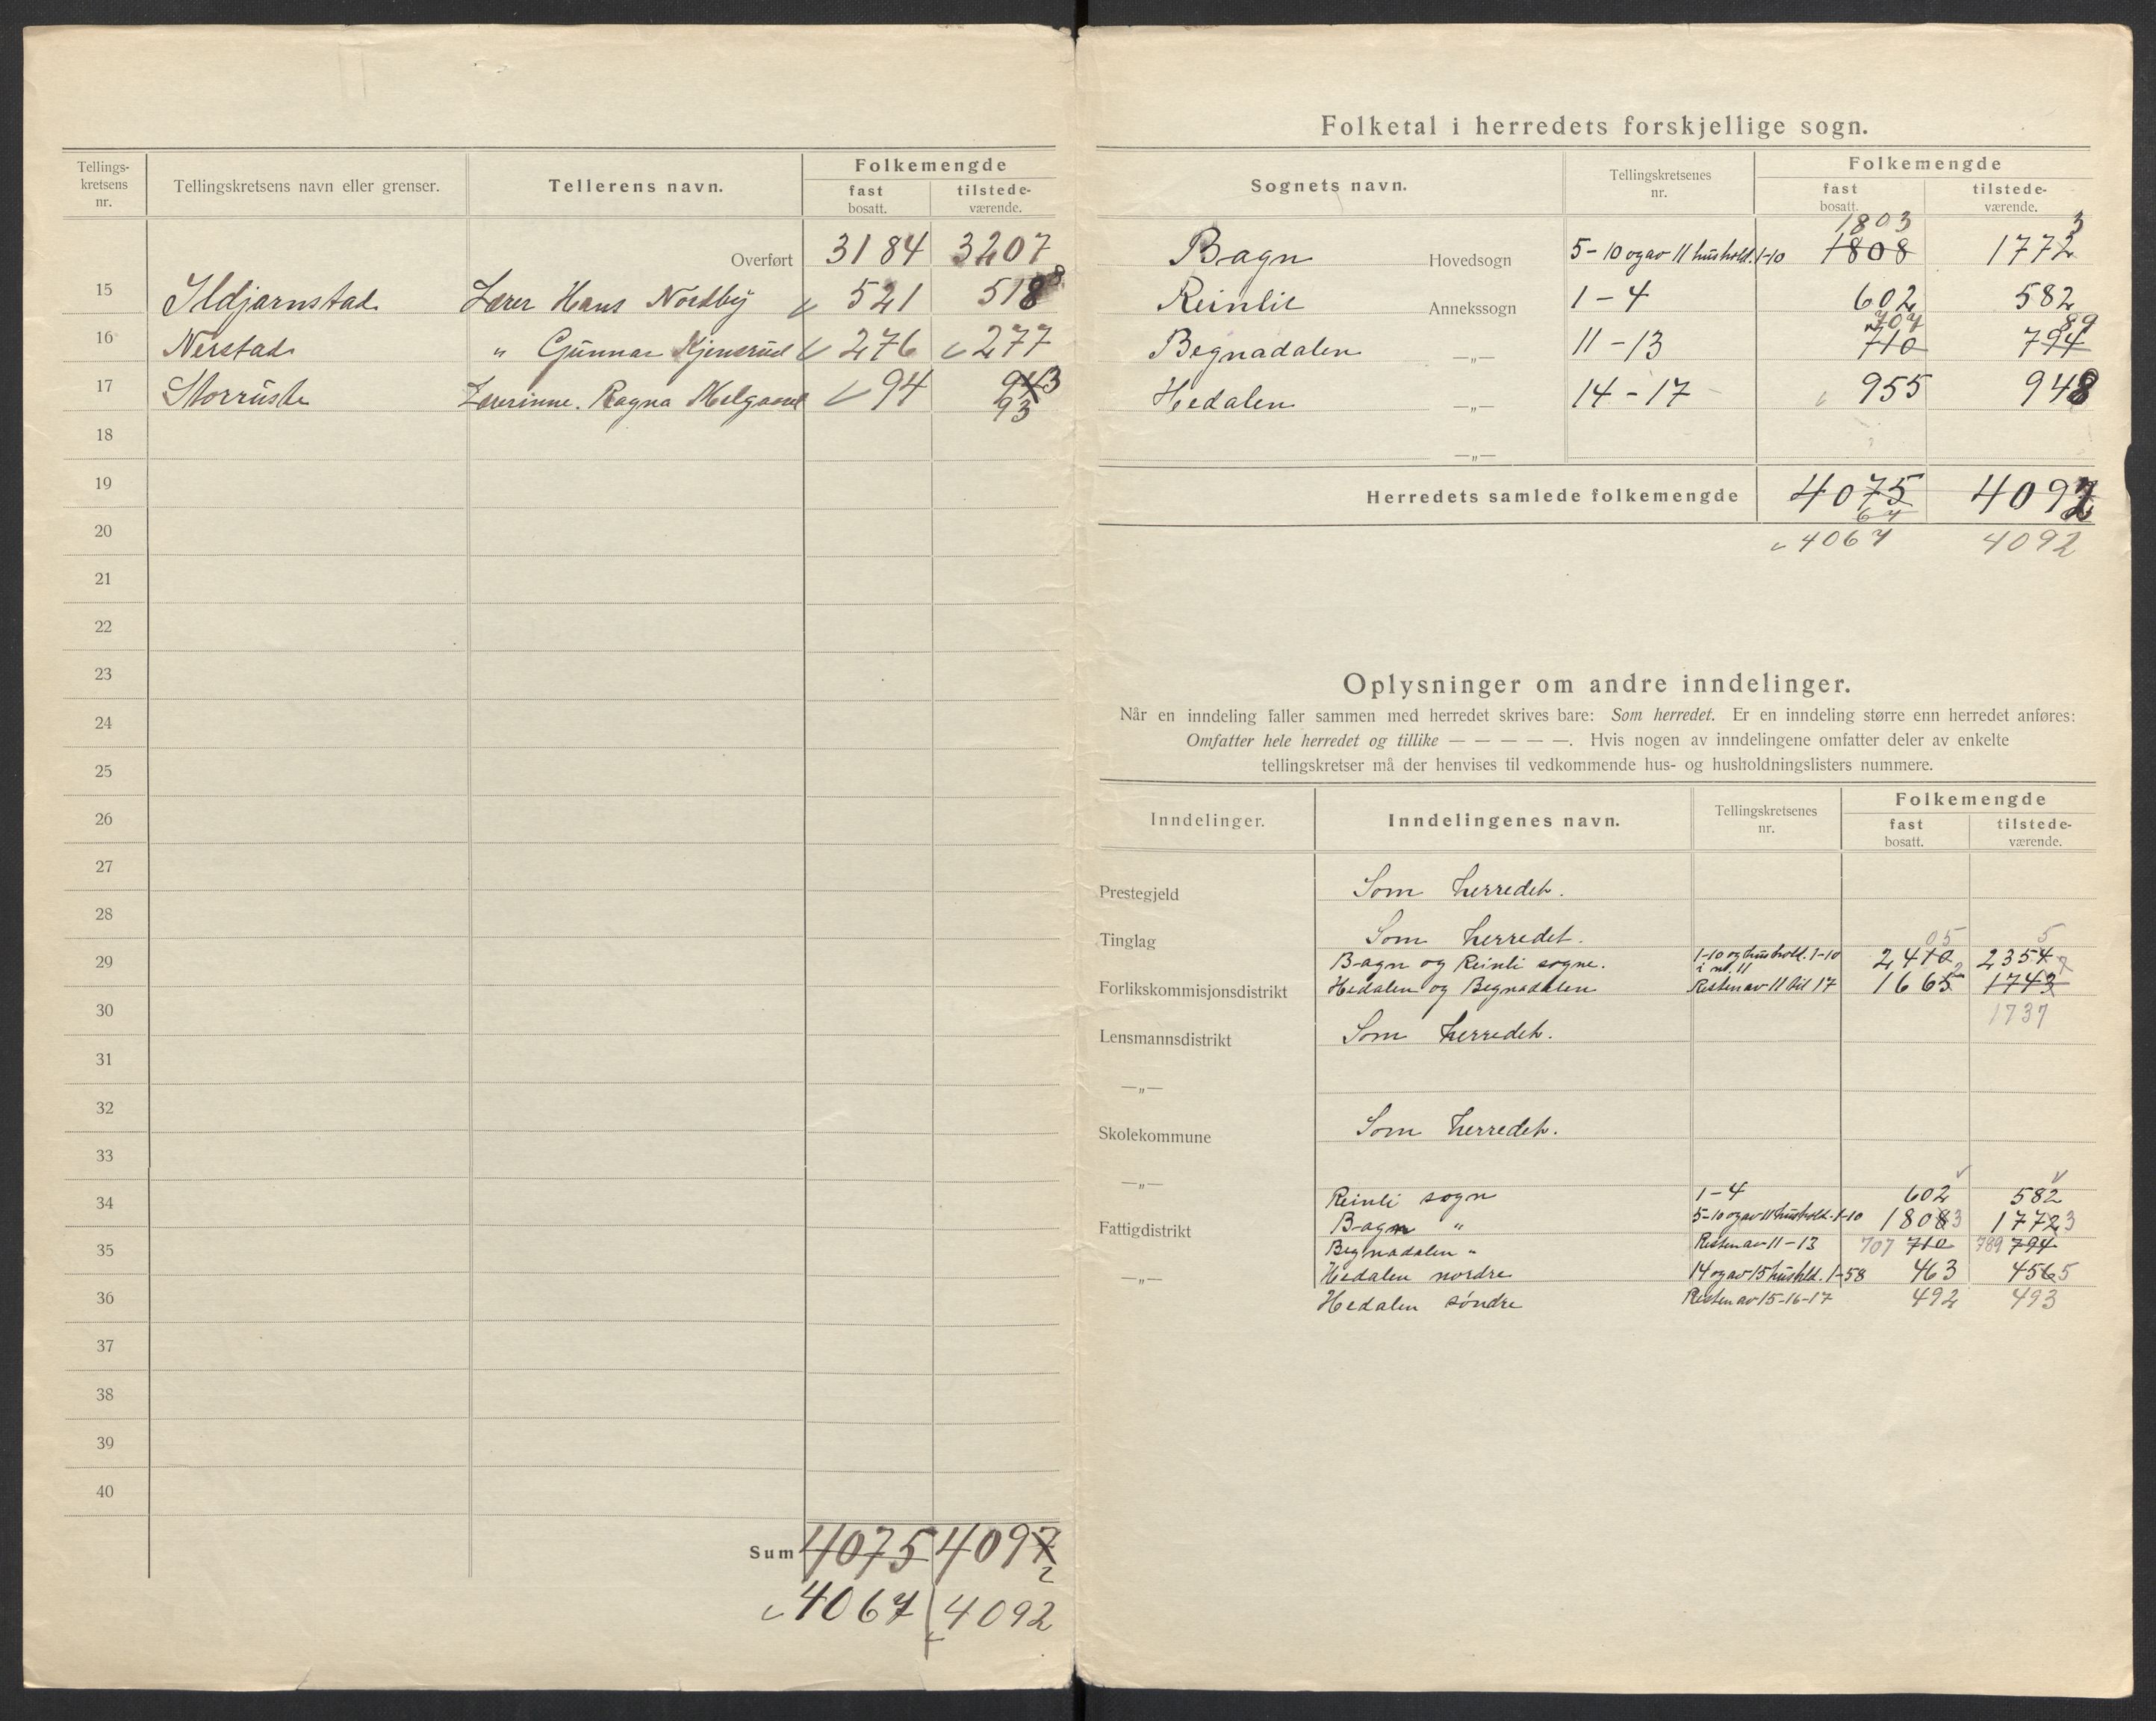 Tellings-kretsens nr. | Tellingskretsens navn eller grenser. | Tellerens navn. | Folkemengde
fast bosatt. | tilstede-værende.
Overført | 3184 | 3207
15 | Ildjarnstad | Lærer Hans Nordby | 521 | 518
16 | Nerstad | " Gunnar Kjensrud | 276 | 277
17 | Storruste | Lærerinne. Ragna Melgaard | 94 | 943
93
18
19
20
21
22
23
24
25
26
27
28
29
30
31
32
33
34
35
36
37
38
39
40
Sum | 4075 | 4097
2
4067 | 4092
Folketal i herredets forskjellige sogn.
Sognets navn. | Tellingskretsenes nr. | Folkemengde
fast bosatt. | tilstede-værende.
1803 | 3
Bagn | Hovedsogn | 5-10 og av 11 hushold. 1-10 | 1808 | 1772
Reinli | Annekssogn | 1-4 | 602 | 582
707 | 89
Begnadalen | —„— | 11-13 | 710 | 794
Hedalen | —„— | 14-17 | 955 | 948
—„—
Herredets samlede folkemengde | 4075 | 4092
67
4067 | 4092
Oplysninger om andre inndelinger.
Når en inndeling faller sammen med herredet skrives bare: Som herredet. Er en inndeling større enn herredet anføres:
Omfatter hele herredet og tillike — — — — —. Hvis nogen av inndelingene omfatter deler av enkelte
tellingskretser må der henvises til vedkommende hus- og husholdningslisters nummere.
Inndelinger. | Inndelingenes navn. | Tellingskretsenes nr. | Folkemengde
fast bosatt. | tilstede-værende.
Prestegjeld | Som herredet.
Tinglag | Som herredet.
05 | 5
Bagn og Reinli sogne. | 1-10 og hushold. 1-10 i nr. 11 | 2410 | 2354
Forlikskommisjonsdistrikt | Hedalen og Begnadalen | Resten av 11 til 17 | 1665 2 | 1743
1737
Lensmannsdistrikt | Som herredet.
—„—
Skolekommune | Som herredet.
—„—
Reinli sogn | 1-4 | 602 | 582
Fattigdistrikt | Bagn " | 5-10 og av 11 hushold. 1-10 | 1808 3 | 1772 3
Begnadalen " | Resten av 11-13 | 707 710 | 789 794
—„— | Hedalen nordre | 14 og av 15 hushld. 1-58 | 463 | 456 5
Hedalen søndre | Resten av 15-16-17 | 492 | 493